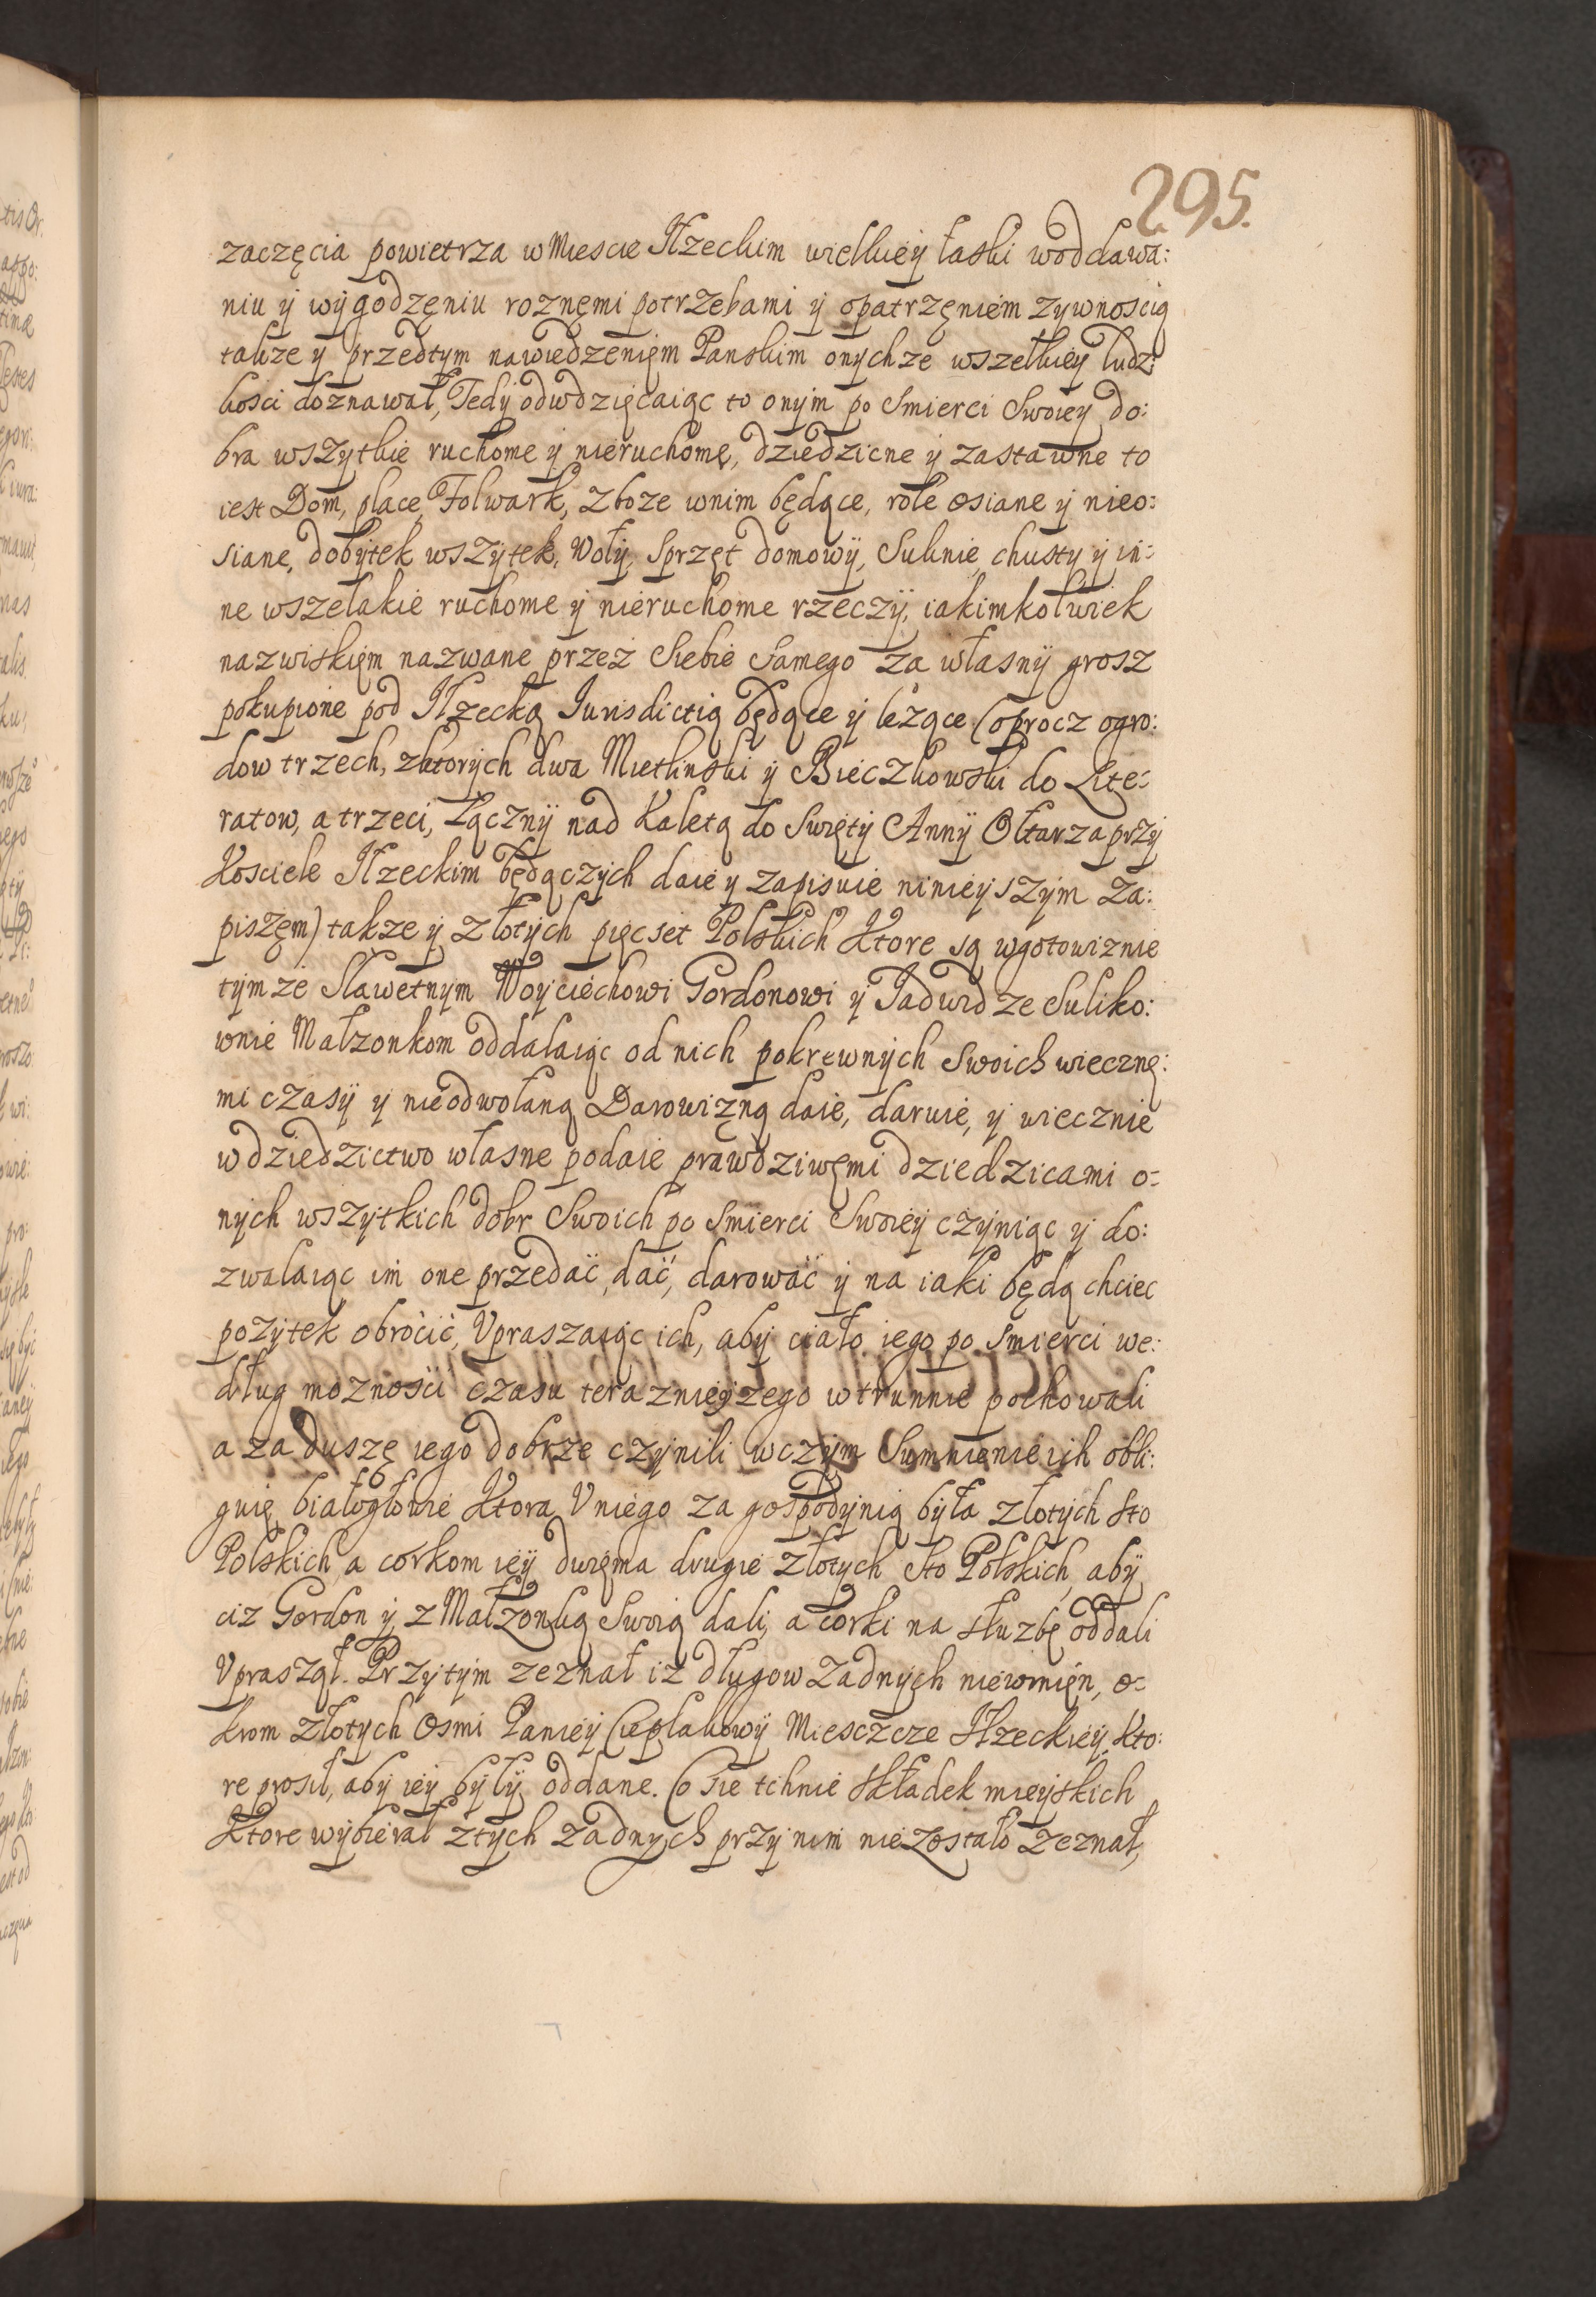 295.
zaczęcia powietrza w Miescie Iłzeckim wielkiey łaski w oddawa:
niu ÿ wÿgodzęniu roznęmi potrzebami ÿ opatrzęniem zywnoscią
takze ÿ przedtym nawiedzenięm Panskim onychze wszelkiey ludz:
kosci doznawał, Tedÿ odwdzięcaiąc to onÿm po Smierci Swoiey do:
bra wszytkie ruchome ÿ nieruchomę, dziedzicne ÿ zastawne to
iest Dom, place, Folwark, zboze wnim będące, role osiane ÿ nieo:
siane, dobÿtek wszÿtek, Wołÿ, Sprzęt domowÿ, Suknie, chusty ÿ in:
ne wszelakie ruchome ÿ nieruchome rzeczÿ, iakimkolwiek
nazwiskięm nazwane przez Siebie Samego za własnÿ grosz
pokupione pod Iłzecką Iurisdictią będące ÿ lezące (oprocz ogro:
dow trzech, zktorÿch dwa Mietlinski ÿ Bieczkowski do Lite:
ratow, a trzeci, Łącznÿ nad Kaletą do Swiętÿ Annÿ Ołtarza przÿ
Kosciele Iłzeckim będączÿch daie y zapisuie ninieÿszÿm Za:
piszęm) takze ÿ złotÿch pięcset Polskich Ktore są wgotowiznie
tÿmze Sławetnym Woÿciechowi Gordonowi ÿ Jadwidze Suliko:
wnie Małzonkom oddalaiąc od nich pokrewnÿch Swoich wiecznę:
mi czasÿ ÿ nieodwołaną Darowizną daie, daruie, ÿ wiecznie
w dziedzictwo własne podaie prawdziwęmi dziedzicami o:
nÿch wszÿtkich dobr Swoich po Smierci Swoieÿ czÿniąc ÿ do:
zwalaiąc im one przedać, dać, darować ÿ na iaki będą chciec
pozÿtek obrocić, Vpraszaiąc ich, abÿ ciało iego po Smierci we:
dług moznosci czasu teraznieÿszego w trunnie pochowali
a za duszę iego dobrze czÿnili w czÿm Sumnienie ich obli:
guię, białogłowie Ktora Vniego za gospodÿnią bÿła złotÿch Sto
Polskich, a corkom ieÿ dwięma drugie złotych Sto Polskich, abÿ
ciz Gordon ÿ z Małzonką Swoią dali, a corki na słuzbę oddali
Vpraszał. Przÿtÿm zeznał iz długow zadnÿch niewinięn, o:
krom złotych Osmi Panieÿ Cieplakowÿ Miesczcze Iłzeckieÿ, Kto:
re prosił, abÿ ieÿ bÿłÿ oddane. Co sie tchnie składek mieÿskich
Ktore wÿbierał ztÿch zadnÿch przÿ nim niezostało zeznał,